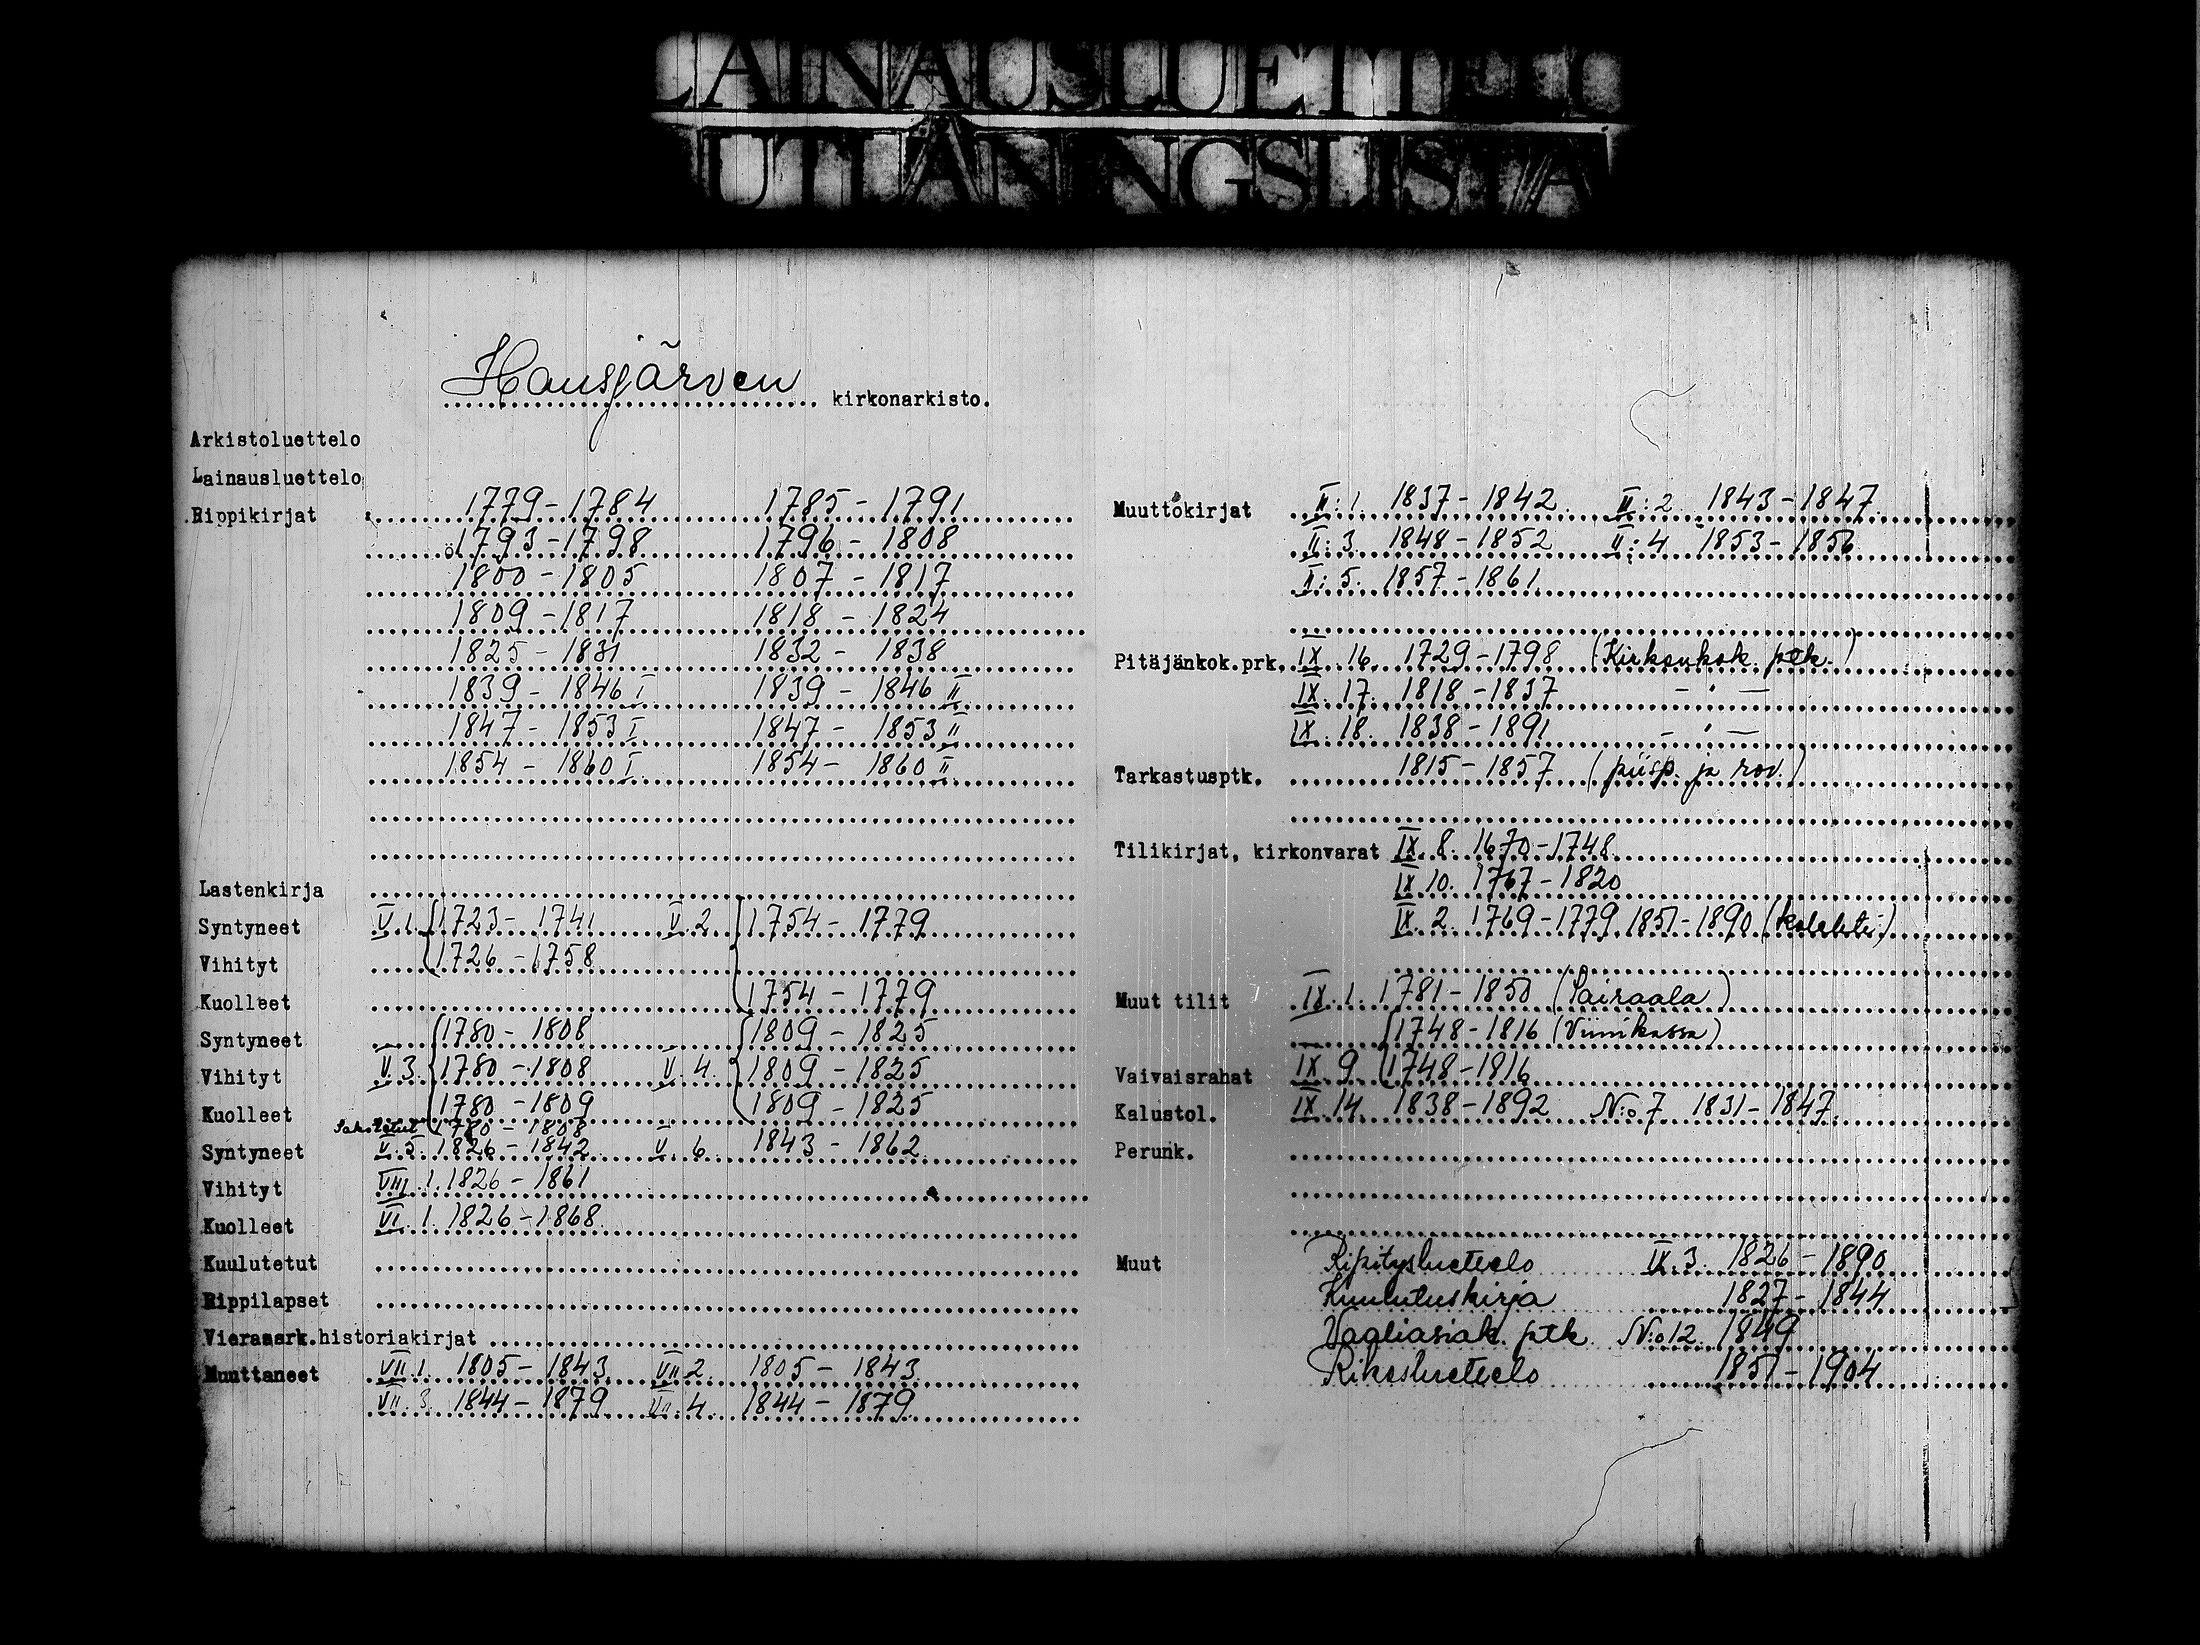 LAINAUSLUETTELO
UTLÅNINGSLISTA
Hausjärven kirkonarkisto.
Arkistoluettelo
Lainausluettelo
Rippikirjat 1779-1784 1785-1791
1793-1798 1796-1808
1800-1805 1807-1817
1809-1817 1818-1824
1825-1831 1832-1838
1839-1846 I 1839-1846 II
1847-1853 I 1847-1853 II
1854-1860 I 1854-1860 II
Lastenkirja
Syntyneet V.1. 1723-1741 V.2. 1754-1779
Vihityt 1726-1758
Kuolleet 1754-1779
Syntyneet 1780-1808 1809-1825
Vihityt V.3. 1780-1808 V.4. 1809-1825
Kuolleet 1780-1809 1809-1825
1780-1808
Syntyneet V.5. 1826-1842 V.6. 1843-1862
Vihityt VIII.1. 1826-1861
Kuolleet VI.1. 1826-1868
Kuulutetut
Rippilapset
Vieraserk.historiakirjat
Muuttaneet VII.1. 1805-1843 VII:2. 1805-1843
VII.3. 1844-1879 VII:4. 1844-1879
Muuttokirjat II:1. 1837-1842 II:2. 1843-1847
II:3. 1848-1852 II:4. 1853-1856
II:5. 1857-1861
Pitäjänkok.prk. IX.16. 1729-1798 (Kirkonkok. ptk.)
IX.17. 1818-1837 - " -
IX.18. 1838-1891 - " -
Tarkastusptk. 1815-1857 (piisp. ja rov.)
Tilikirjat, kirkonvarat IX.8. 1670-1748
IX.10. 1767-1820
IX.2. 1769-1779 1851-1890 (kolehti)
Muut tilit IX.1. 1781-1850 (Sairaala)
1748-1816 (Viinikassa)
Vaivaisrahat IX.9. 1748-1816
Kalustol. IX.14. 1838-1892 N:o 7 1831-1847
Perunk.
Muut Ripitysluettelo IX.3. 1826-1890
Kuulutuskirja 1827-1844
Vaaliasiak. ptk. N:o 12. 1849
Rikosluettelo 1851-1904